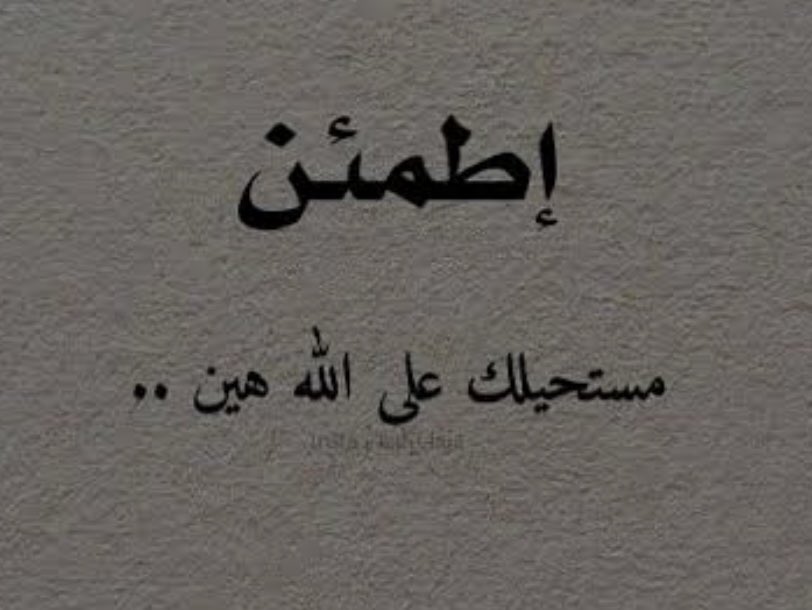 إطمئن
مستحيلك على الله هين ..